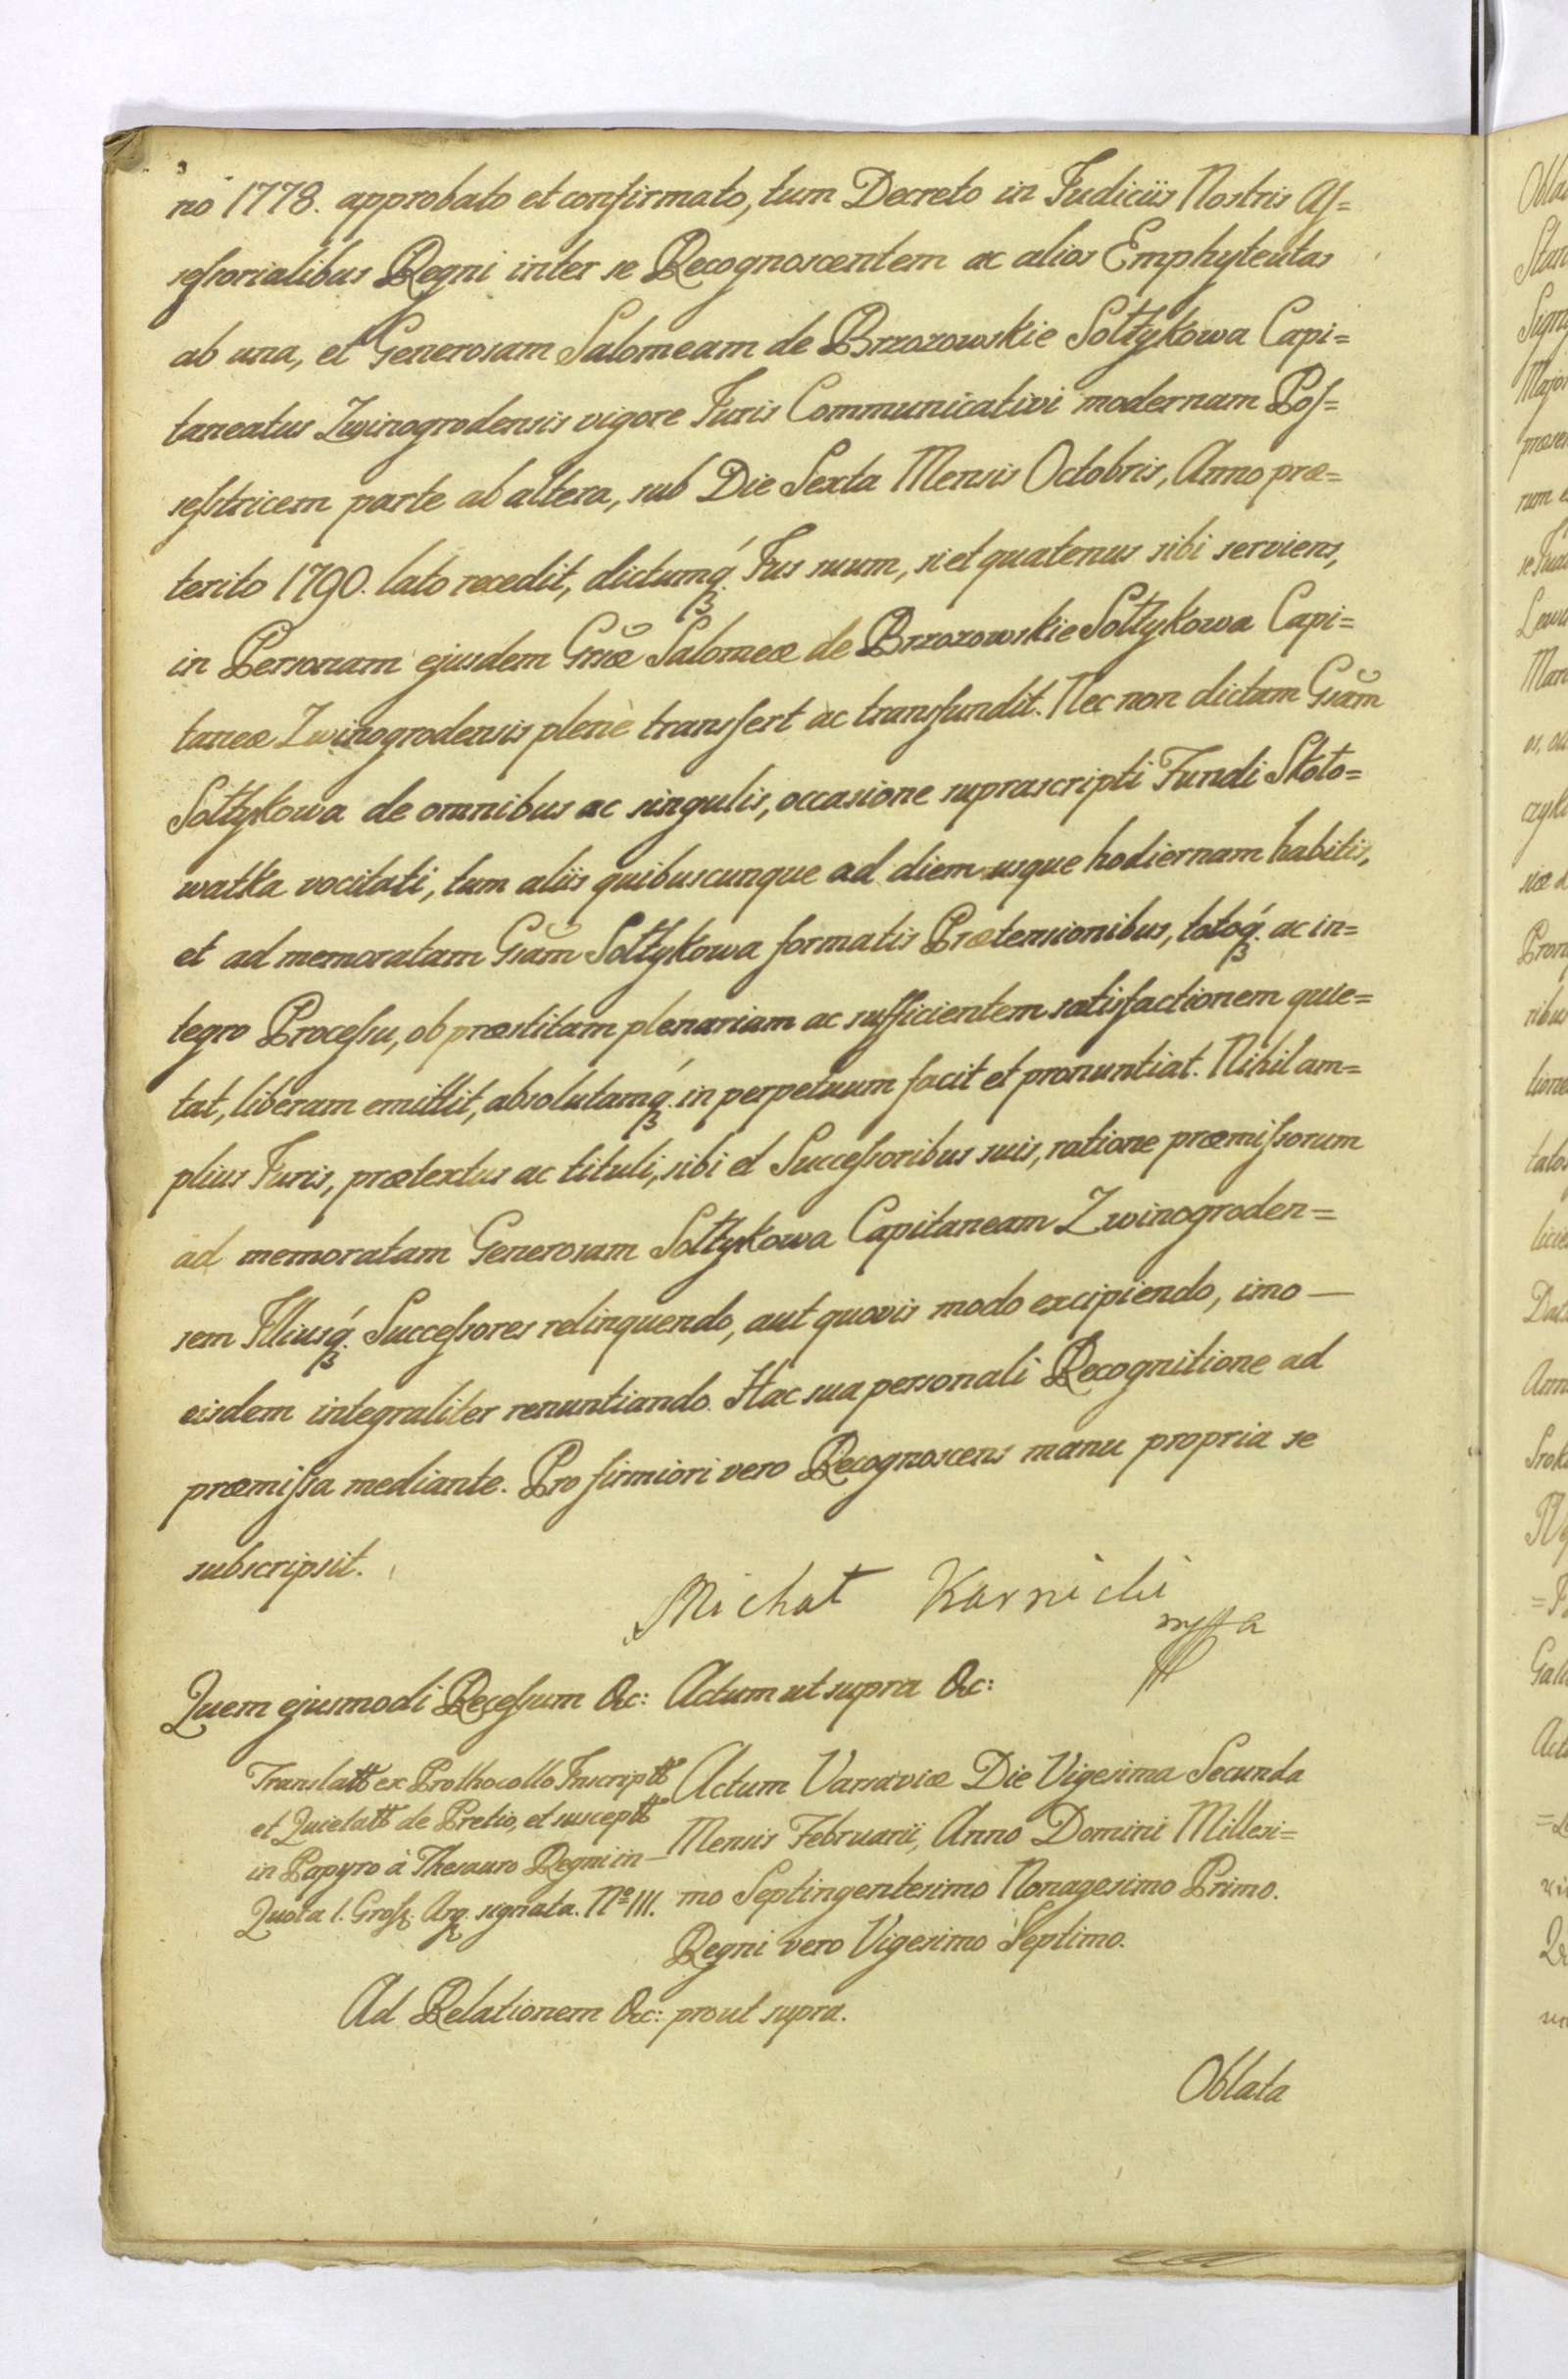 no 1778. approbato et confirmato, tum Decreto in Judiciis Nostris Aſ=
seſsorialibus Regni inter se Recognoscentem ac alios Emphyteutas
ab una, et Generosam Salomeam de Brzozowskie Sołtykowa Capi=
taneatus Zwinogrodensis vigore Juris Communicativi modernam Poſ=
seſstricem parte ab altera, sub Die Sexta Mensis Octobris, Anno præ=
terito 1790. lato recedit, dictumq́ꝫ Jus suum, si et quatenus sibi serviens,
in Personam ejusdem Grsæ Salomeæ de Brzozowskie Sołtykowa Capi=
taneæ Zwinogrodensis plenè transfert ac transfundit. Nec non dictam Gsam
Sołtykowa de omnibus ac singulis, occasione suprascripti Fundi Skoto=
watka vocitati, tum aliis quibuscunque ad diem usque hodiernam habitis,
et ad memoratam Gsam Sołtykowa formatis Prætensionibus, totoq́ꝫ ac in=
tegro Proceſsu, ob præstitam plenariam ac sufficientem satisfactionem quie=
tat, liberam emittit, absolutamq́ꝫ in perpetuum facit et pronuntiat. Nihil am=
plius Juris, prætextus ac tituli, sibi et Succeſsoribus suis, ratione præmiſsorum
ad memoratam Generosam Sołtykowa Capitaneam Zwinogroden=
sem Illiusq́ꝫ Succeſsores relinquendo, aut quovis modo excipiendo, imo —
eisdem integraliter renuntiando. Hac sua personali Recognitione ad
præmiſsa mediante. Pro firmiori vero Recognoscens manu propria se
subscripsit.
Michał Karnicki
mppa
Quem ejusmodi Receſsum &c: Actum ut supra &c:
Translatt ex Prothocollo Inscriptt
et Quietatt de Pretio, et susceptt
in Papyro à Thesauro Regni in —
Quota 1. Groſs. Arg. signata. No III.
Actum Varsaviæ Die Vigesima Secunda
Mensis Februarii, Anno Domini Millesi=
mo Septingentesimo Nonagesimo Primo.
Regni vero Vigesimo Septimo.
Ad Relationem &c: prout supra.
Oblata